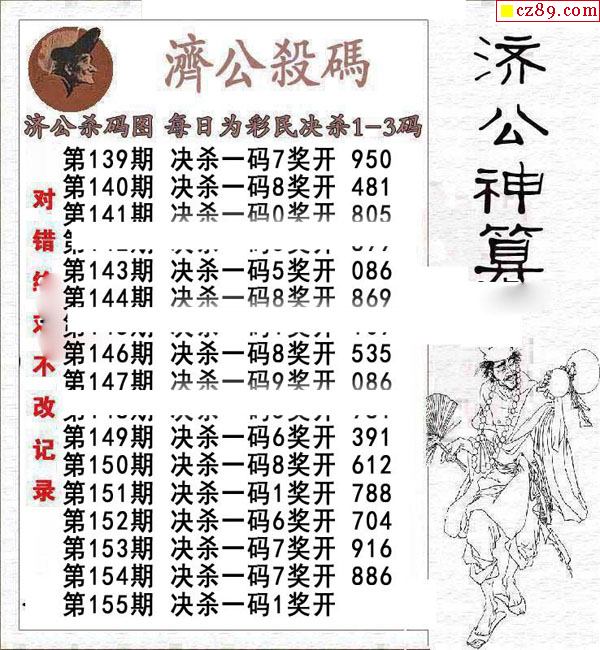 cz89.com
濟公殺碼
济公杀码图 每日为彩民决杀1-3码
第139期 决杀一码7奖开 950
第140期 决杀一码8奖开 481
第141期 决杀一码0奖开 805
第143期 决杀一码5奖开 086
第144期 决杀一码8奖开 869
第146期 决杀一码8奖开 535
第147期 决杀一码9奖开 086
第149期 决杀一码6奖开 391
第150期 决杀一码8奖开 612
第151期 决杀一码1奖开 788
第152期 决杀一码6奖开 704
第153期 决杀一码7奖开 916
第154期 决杀一码7奖开 886
第155期 决杀一码1奖开
对错
不改记录
济公神算